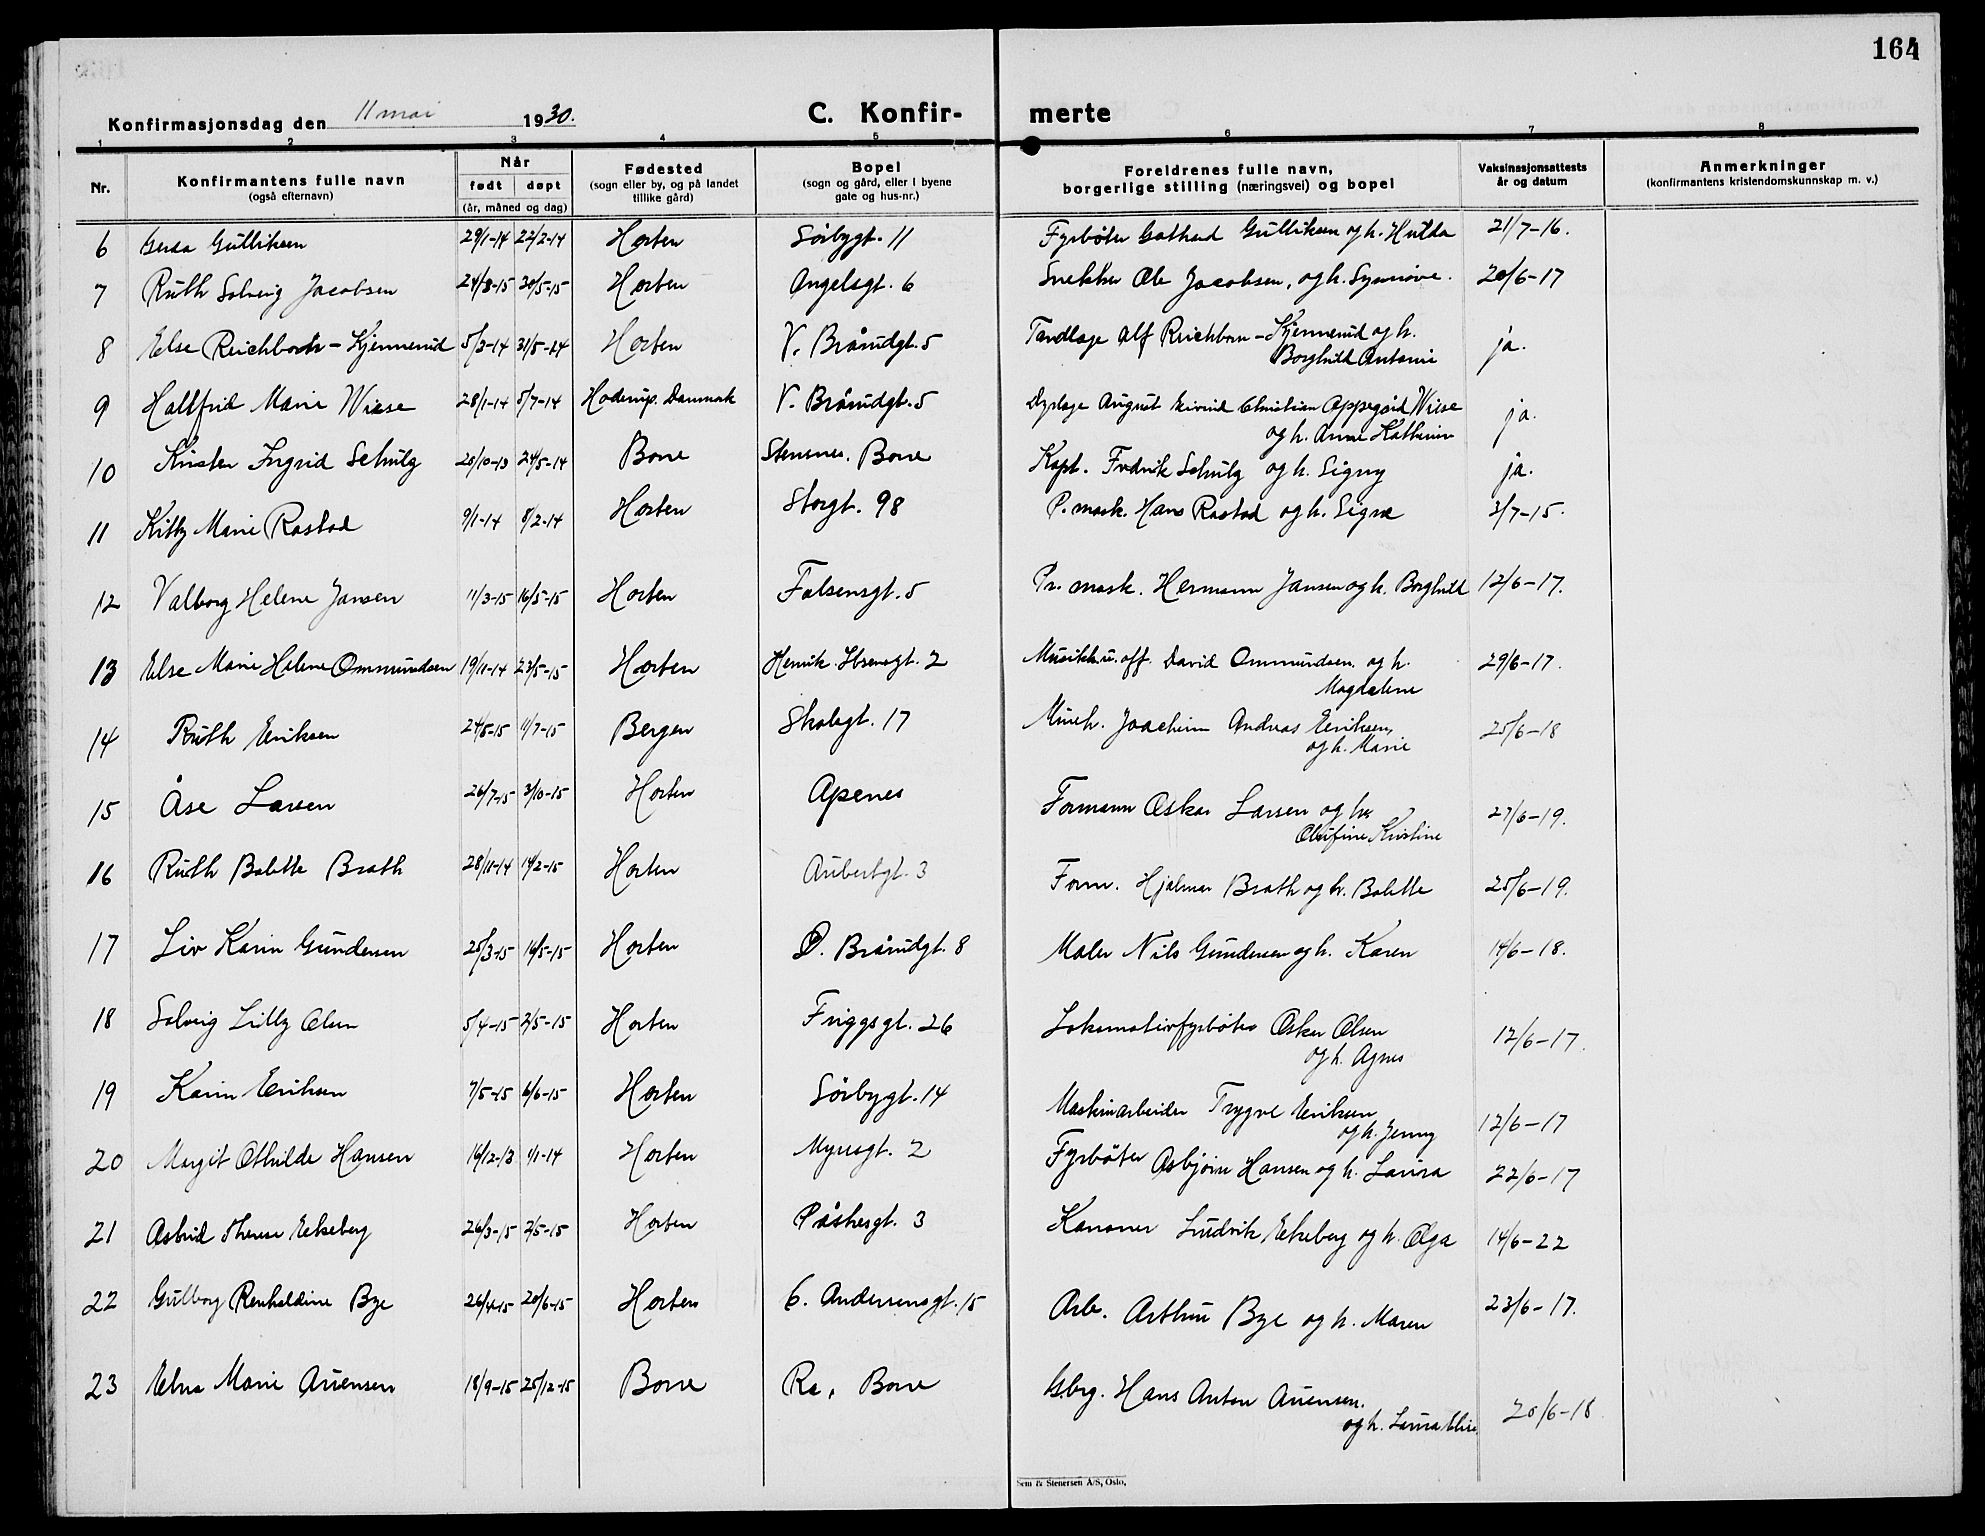 164
Konfirmasjonsdag den 11 mai 1930.
C. Konfir- merte
1 2 3 4 5 6 7 8
Nr. Konfirmantens fulle navn (også efternavn) Når født døpt (år, måned og dag) Fødested (sogn eller by, og på landet tillike gård) Bopel (sogn og gård, eller i byene gate og hus-nr.) Foreldrenes fulle navn, borgerlige stilling (næringsvei) og bopel Vaksinasjonsattests år og datum Anmerkninger (konfirmantens kristendomskunnskap m. v.)
6 Gerda Gulliksen 29/1-14 22/2-14 Horten Sörbygt. 11 Fyrböter Gothard Gulliksen og h. Hulda 21/7-16.
7 Ruth Solveig Jacobsen 24/8-15 30/5-15 Horten Angelsgt. 6 Snekker Ole Jacobsen, og h. Synnöve. 20/6-17
8 Else Reichborn-Kjennerud 5/3-14 31/5-14 Horten V. Brårudgt. 5 Tandlæge Alf Reichborn-Kjennerud og h.
Borghild Antonie ja.
9 Hallfrid Marie Wiese 28/1-14 5/7-14 Hoderup. Danmark V. Brårudgt. 5 Dyrlæge August Eivind Christian Appegård Wiese
og h. Anne Kathrine ja.
10 Kirsten Ingrid Schulz 20/10-13 24/5-14 Borre Stensnes. Borre Kapt. Fredrik Schulz og h. Signy ja.
11 Kitty Marie Rastad 9/1-14 8/2-14 Horten Storgt. 98 P. mask. Hans Rastad og h. Signe 3/7-15.
12 Valborg Helene Jansen 11/3-15 16/5-15 Horten Falsensgt. 5 Pr. mask. Hermann Jansen og h. Borghild 12/6-17.
13 Else Marie Helene Ommundsen 19/11-14 23/5-15 Horten Henrik Ibsensgt. 2 Musikk.u.off. David Ommundsen og h.
Magdalene 29/6-17.
14 Ruth Eriksen 24/5-15 11/7-15 Bergen Skolegt. 17 Minek. Joachim Andreas Eriksen,
og h. Marie 25/6-18
15 Åse Larsen 26/7-15 3/10-15 Horten Apenes Formann Oskar Larsen og h.
Olufine Kristine 27/6-19.
16 Ruth Bolette Brath 28/11-14 14/2-15 Horten Aubertgt. 3 Form. Hjalmar Brath og h. Bolette 25/6-19.
17 Liv Karin Gundersen 25/3-15 16/5-15 Horten Ø. Brårudgt. 8 Maler Nils Gundersen og h. Karen 14/6-18.
18 Solveig Lilly Olsen 5/4-15 2/5-15 Horten Friggsgt. 26 Lokomotivfyrböter Oskar Olsen
og h. Agnes 12/6-17.
19 Karin Eriksen 7/5-15 6/6-15 Horten Sörbygt. 14 Maskinarbeider Trygve Eriksen
og h. Jenny 12/6-17
20 Margit Othilde Hansen 16/12-13 1/1-14 Horten Myrsgt. 2 Fyrböter Asbjörn Hansen og h. Laura 22/6-17
21 Astrid Therese Ekeberg 26/3-15 2/5-15 Horten Påskesgt. 3 Kanoner Ludvik Ekeberg og h. Olga 14/6-22
22 Gulborg Renholdine Bye 26/4-15 20/6-15 Horten C. Anderssensgt. 15 Arb. Arthur Bye og h. Maren 23/6-17.
23 Edna Marie Auensen 18/9-15 25/12-15 Borre Ra, Borre Gbrg. Hans Anton Auensen.
og h. Laura Elise 20/6-18
Sem & Stenersen A/S, Oslo.